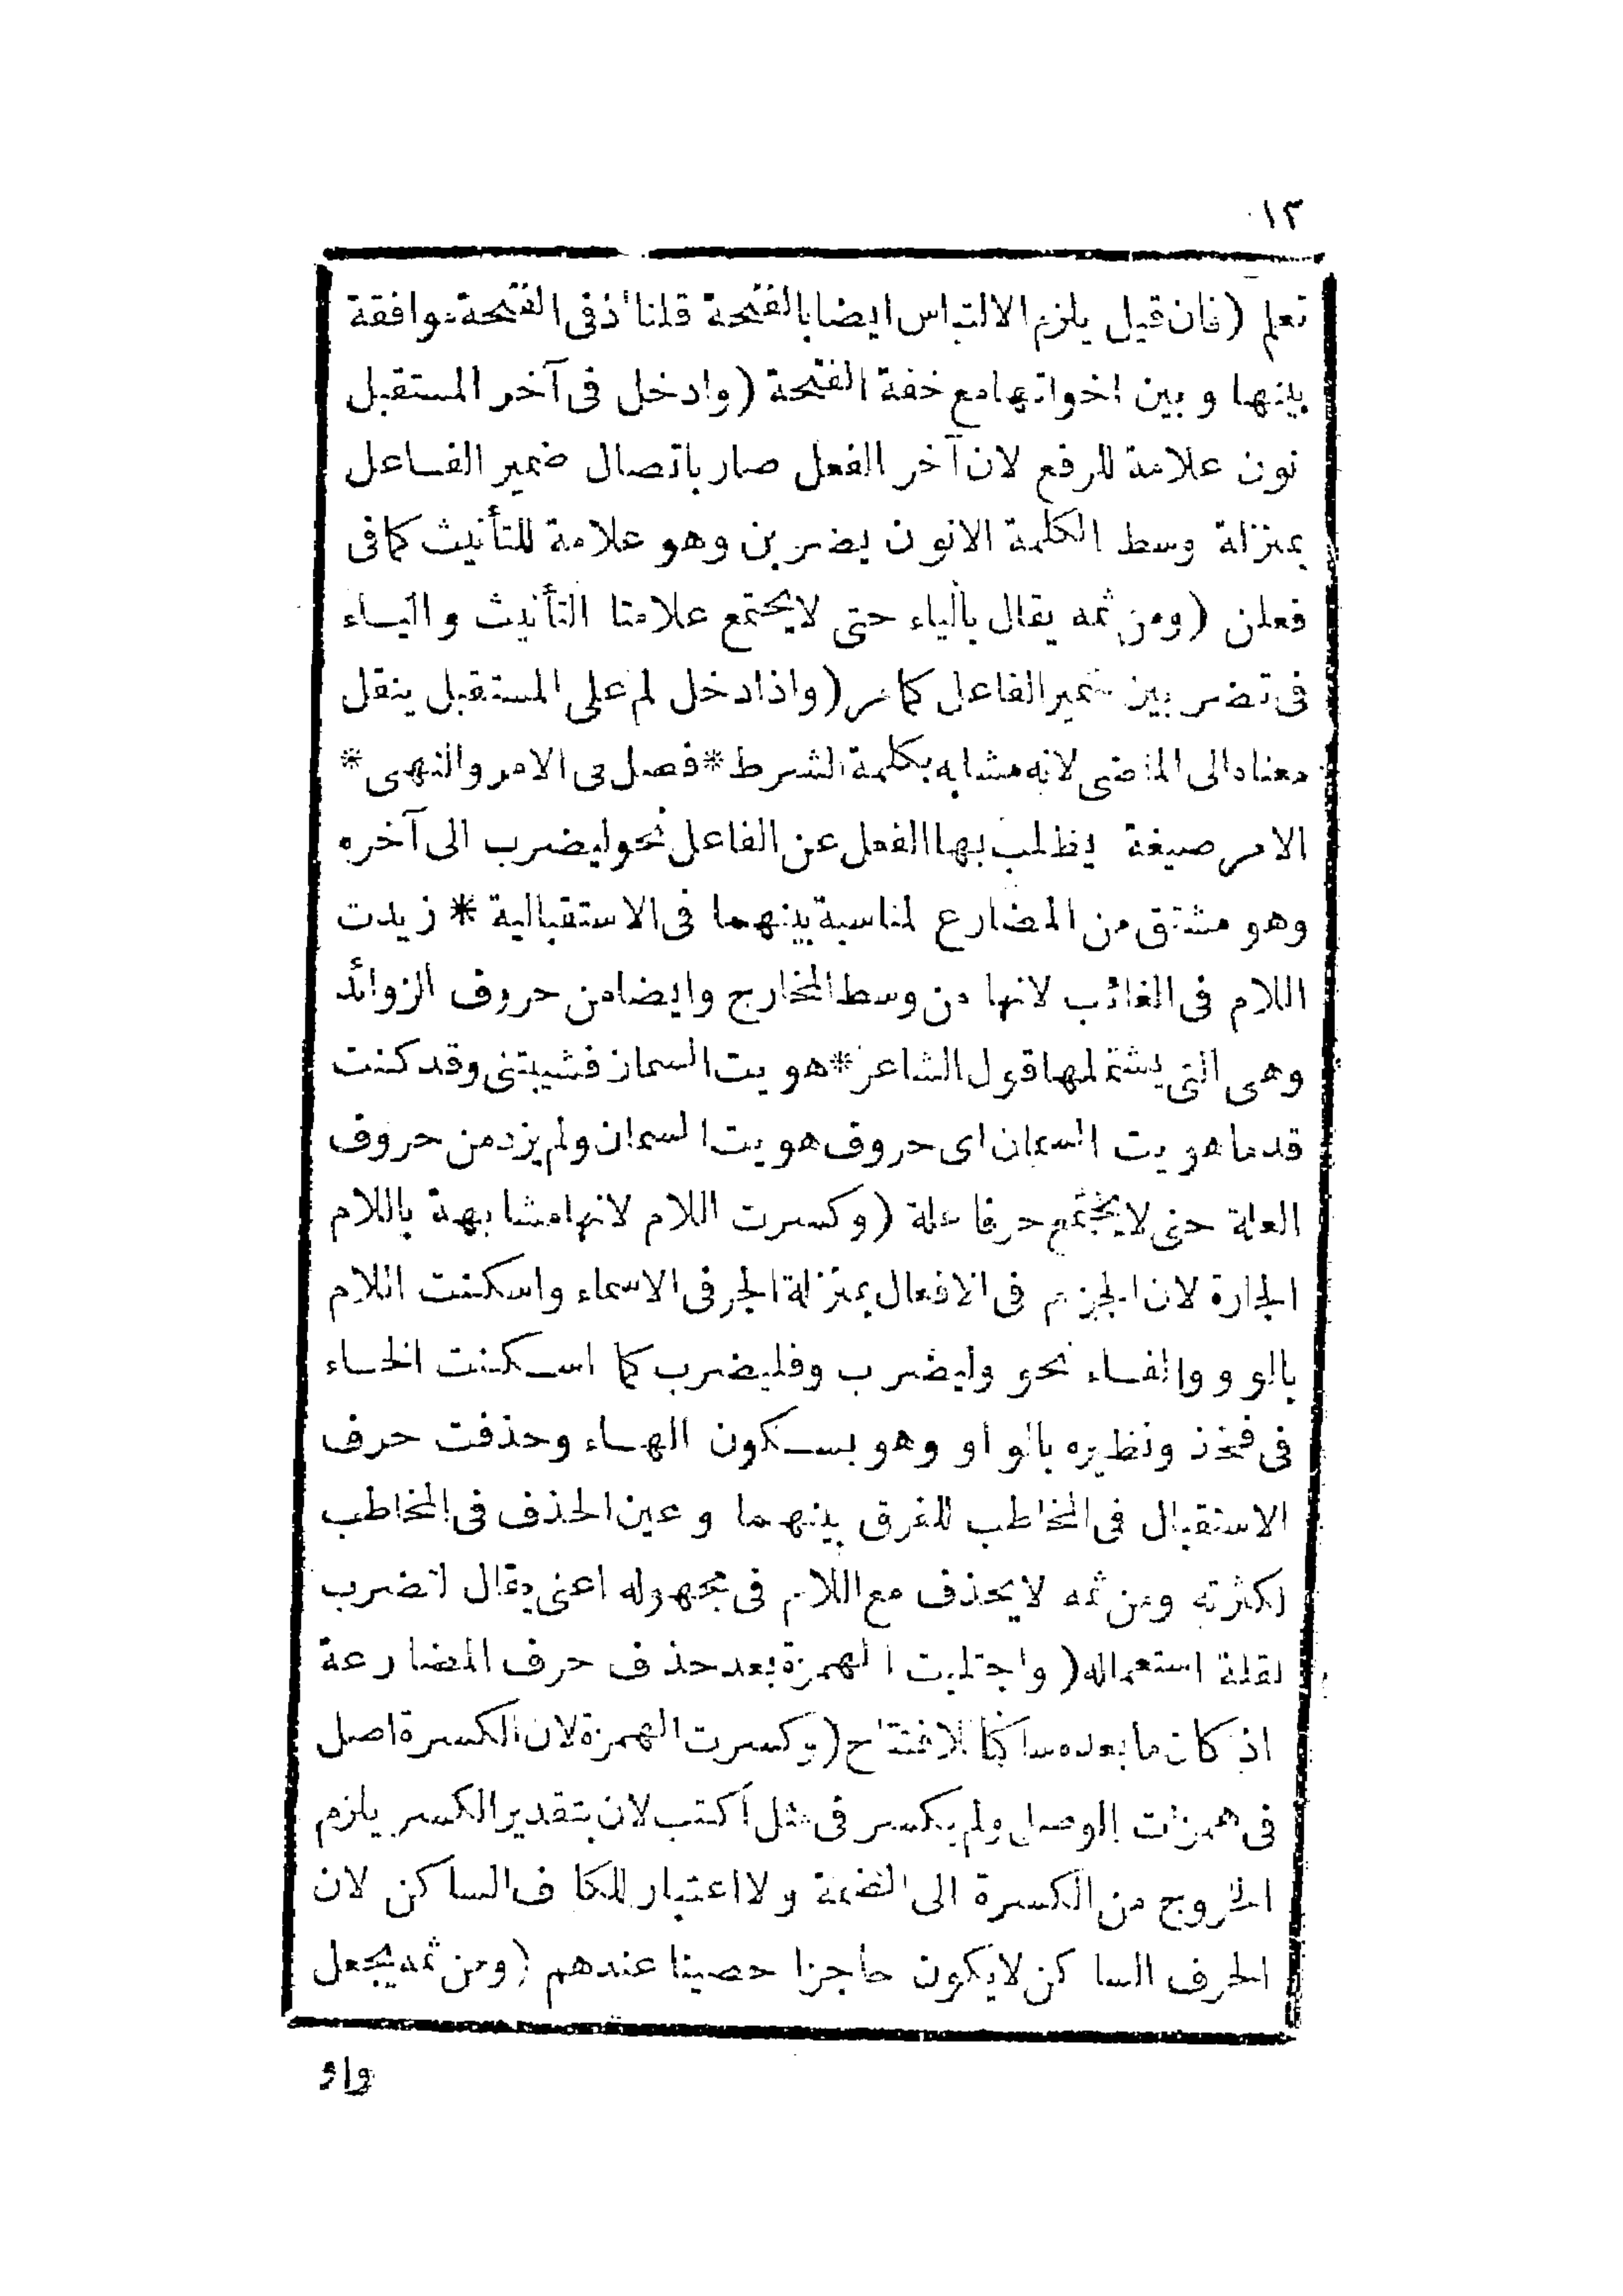 ١٣
تعلم (فان قيل يلزم الالتباس ايضا بالفتحة قلنا اذ فى الفتحة موافقة
بينها و بين اخواتها مع خفة الفتحة (وادخل فى آخر المستقبل
نون علامة للرفع لان آخر الفعل صار باتصال ضمير الفاعل
بمنزلة وسط الكلمة الانون يضربن وهو علامة للتأنيث كما فى
فعلن (ومن ثمه يقال بالياء حتى لا يجتمع علامتا التأنيث والياء
فى تضربين ضمير الفاعل كما مر (واذا دخل لم على المستقبل ينقل
معناه الى الماضى لانه مشابه بكلمة الشرط * فصل فى الامر والنهى *
الامر صيغة يطلب بها الفعل عن الفاعل نحو ليضرب الى آخره
وهو مشتق من المضارع لمناسبة بينهما فى الاستقبالية * زيدت
اللام فى الغائب لانها من وسط المخارج وايضا من حروف الزوائد
وهى التى يشتملها قول الشاعر * هويت السمان فشيبتنى وقد كنت
قدما هويت السمان اى حروف هويت السمان ولم يزد من حروف
العلة حتى لا يجتمع حرفا علة (وكسرت اللام لانها مشابهة باللام
الجارة لان الجزم فى الافعال بمنزلة الجر فى الاسماء واسكنت اللام
بالو و والفاء نحو وليضرب وفليضرب كما اسكنت الخاء
فى فخذ ونظيره بالواو وهو بسكون الهاء وحذفت حرف
الاستقبال فى المخاطب للفرق بينهما وعين الحذف فى المخاطب
لكثرته ومن ثمه لا يحذف مع اللام فى مجهوله اعنى يقال لتضرب
لقلة استعماله (واجتلبت الهمزة بعد حذف حرف المضارعة
اذ كان ما بعده ساكنا للافتتاح (وكسرت الهمزة لان الكسرة اصل
فى همزات الوصل ولم يكسر فى مثل اكتب لان بتقدير الكسر يلزم
الخروج من الكسرة الى الضمة ولا اعتبار للكاف الساكن لان
الحرف الساكن لا يكون حاجزا حصينا عندهم (ومن ثمه يجعل
واو